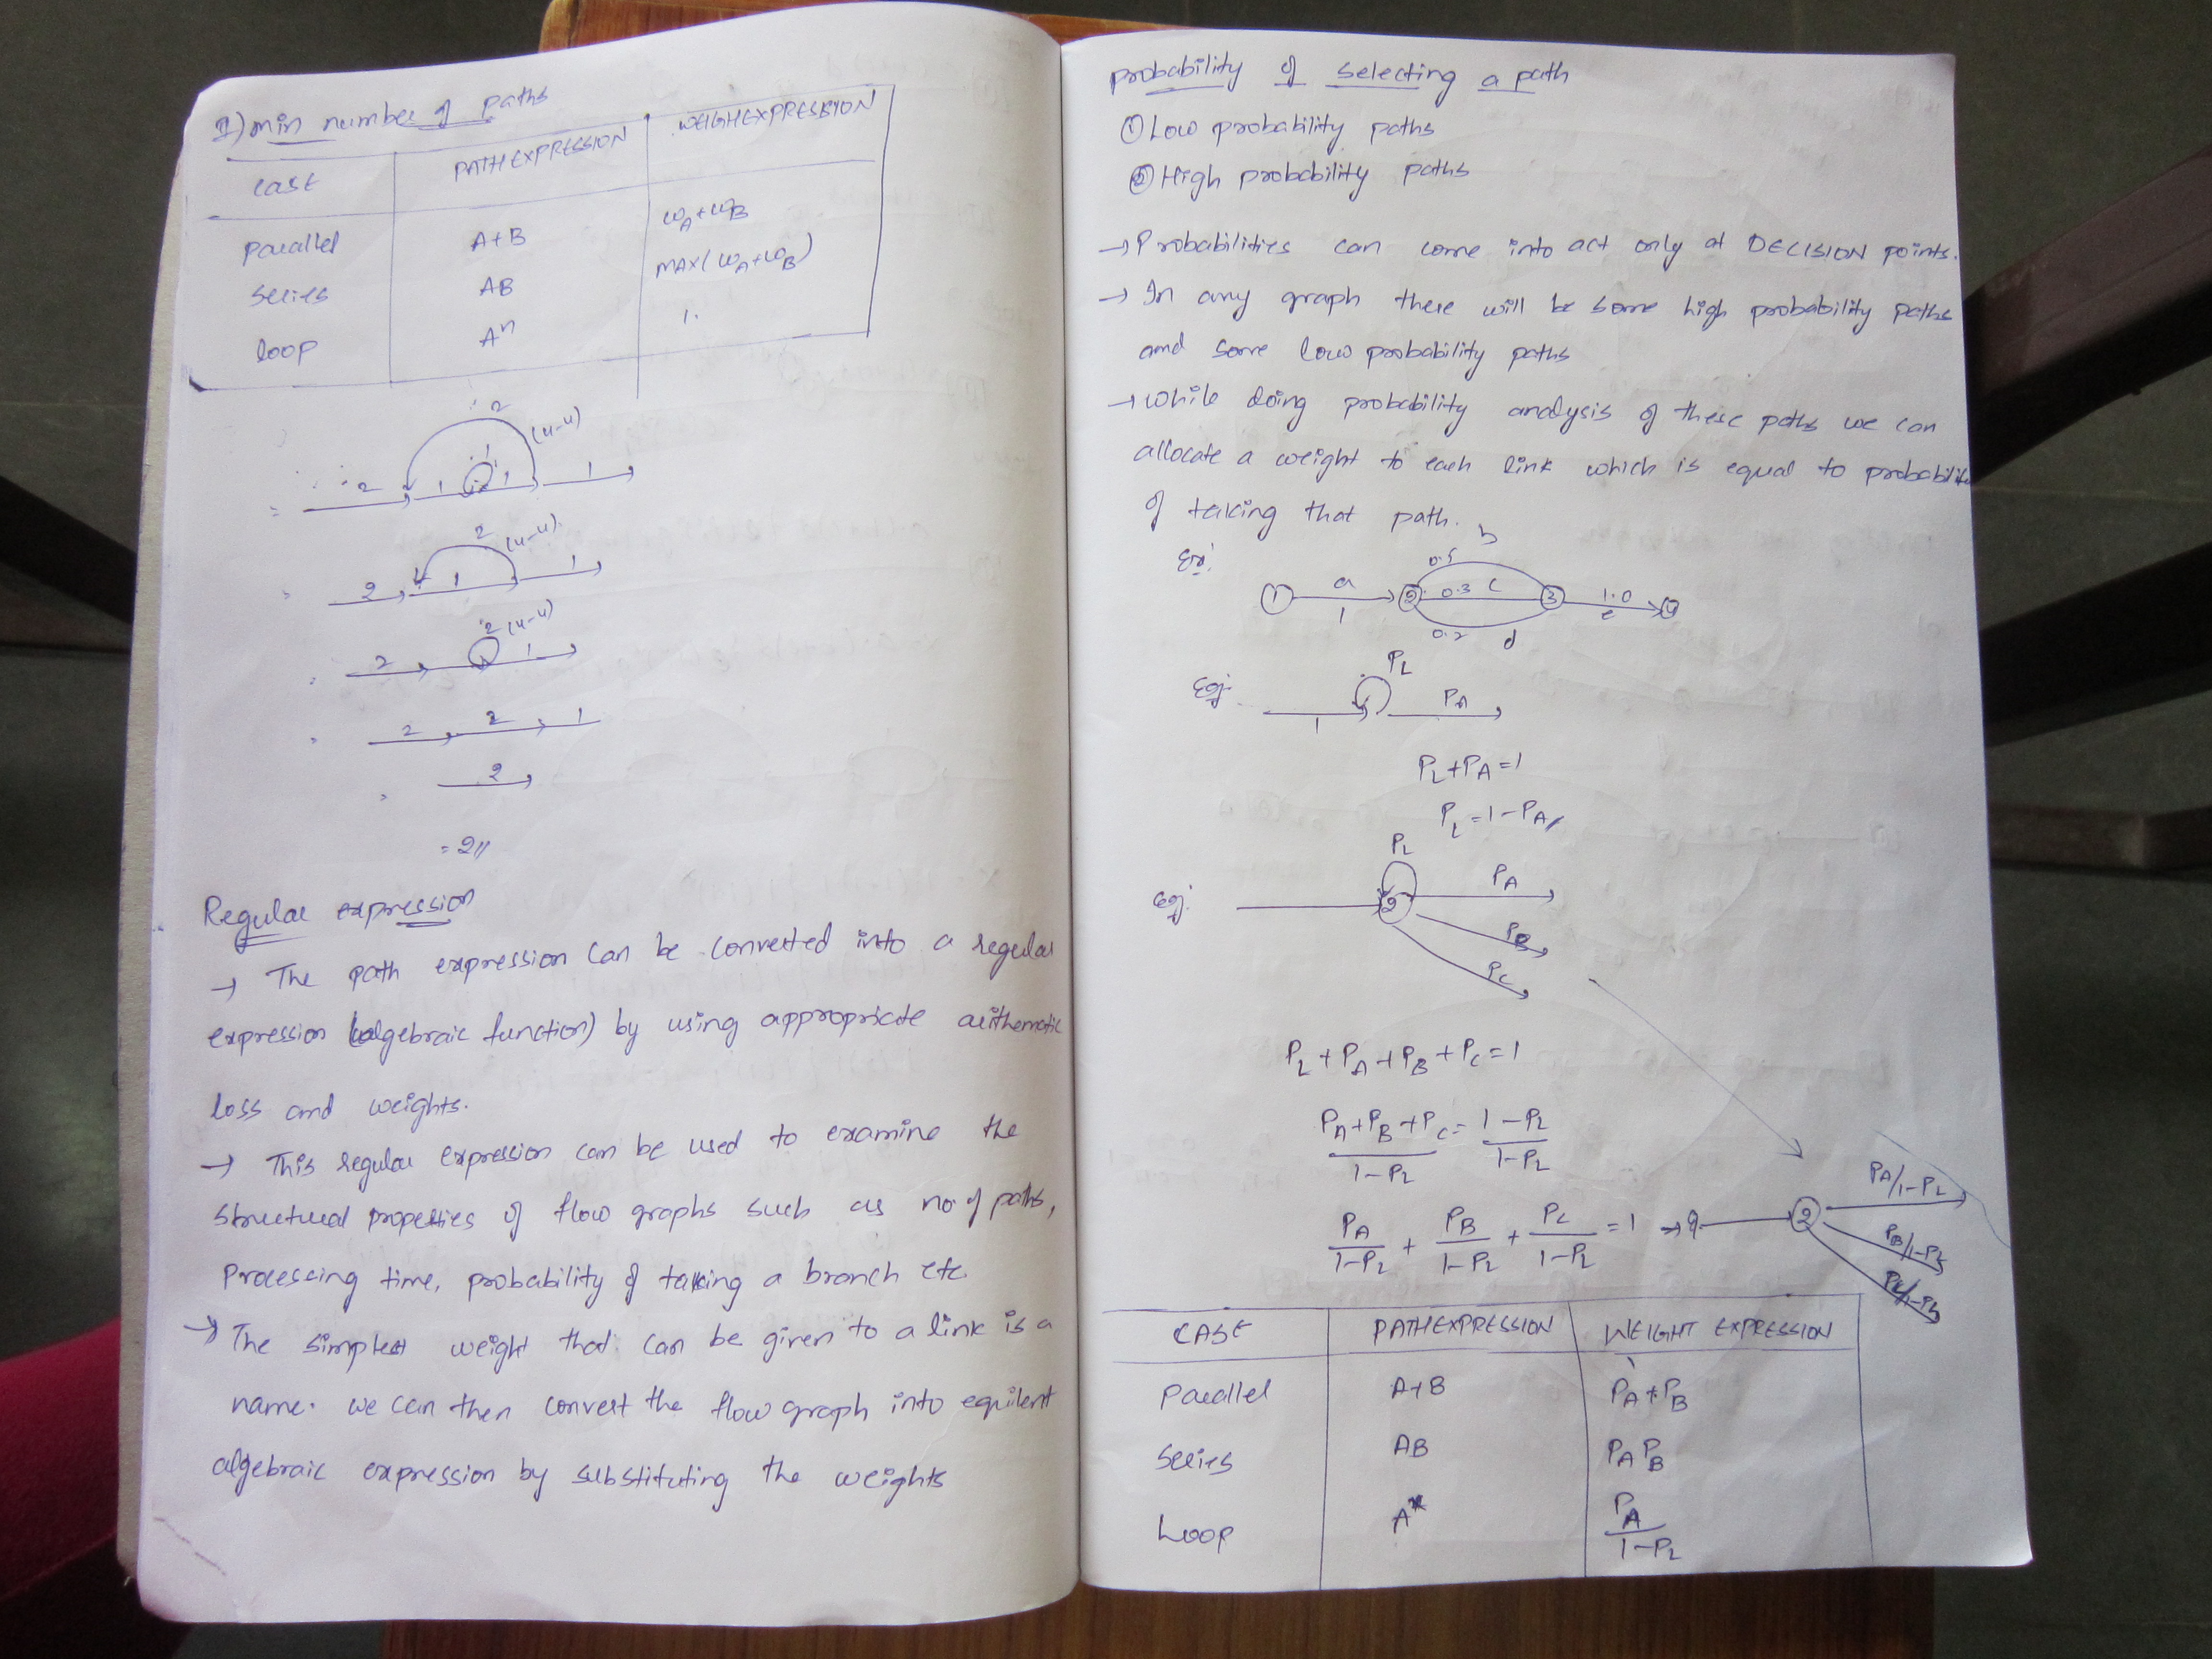 2) min number of paths
CASE PATH EXPRESSION WEIGHT EXPRESSION
Parallel A+B WA+WB
Series AB MAX(WA+WB)
loop Aⁿ 1
2 1 1 1 1 2 (4-4)
2 1 1 2 (4-4)
2 1 2 (4-4)
2 2 1
2
= 2//
Regular expression
→ The path expression can be converted into a regular
expression (algebraic function) by using appropriate arithematic
loss and weights.
→ This regular expression can be used to examine the
structural properties of flow graphs such as no of paths,
Processing time, probability of talking a branch etc.
→ The simplest weight that can be given to a link is a
name. we can then convert the flow graph into equilent
algebraic expression by substituting the weights
Probability of selecting a path
① low probability paths
② High probability paths
→ Probabilities can come into act only at DECISION points.
→ In any graph there will be some high probability paths
and some low probability paths
→ While doing probability analysis of these paths we can
allocate a weight to each link which is equal to probability
of taking that path.
Ex: 1 a 1 2 0.5 b 0.3 c 0.2 d 3 1.0 e
Eg: 1 PL PA
PL+PA=1
PL=1-PA//
eg: 2 PL PA PB PC
PL+PA+PB+PC=1
PA+PB+PC / 1-PL = 1-PL / 1-PL
PA/1-PL + PB/1-PL + PC/1-PL = 1 → 2 PA/1-PL PB/1-PL
CASE PATH EXPRESSION WEIGHT EXPRESSION
Parallel A+B PA+PB
Series AB PAPB
Loop A* PA/1-PL